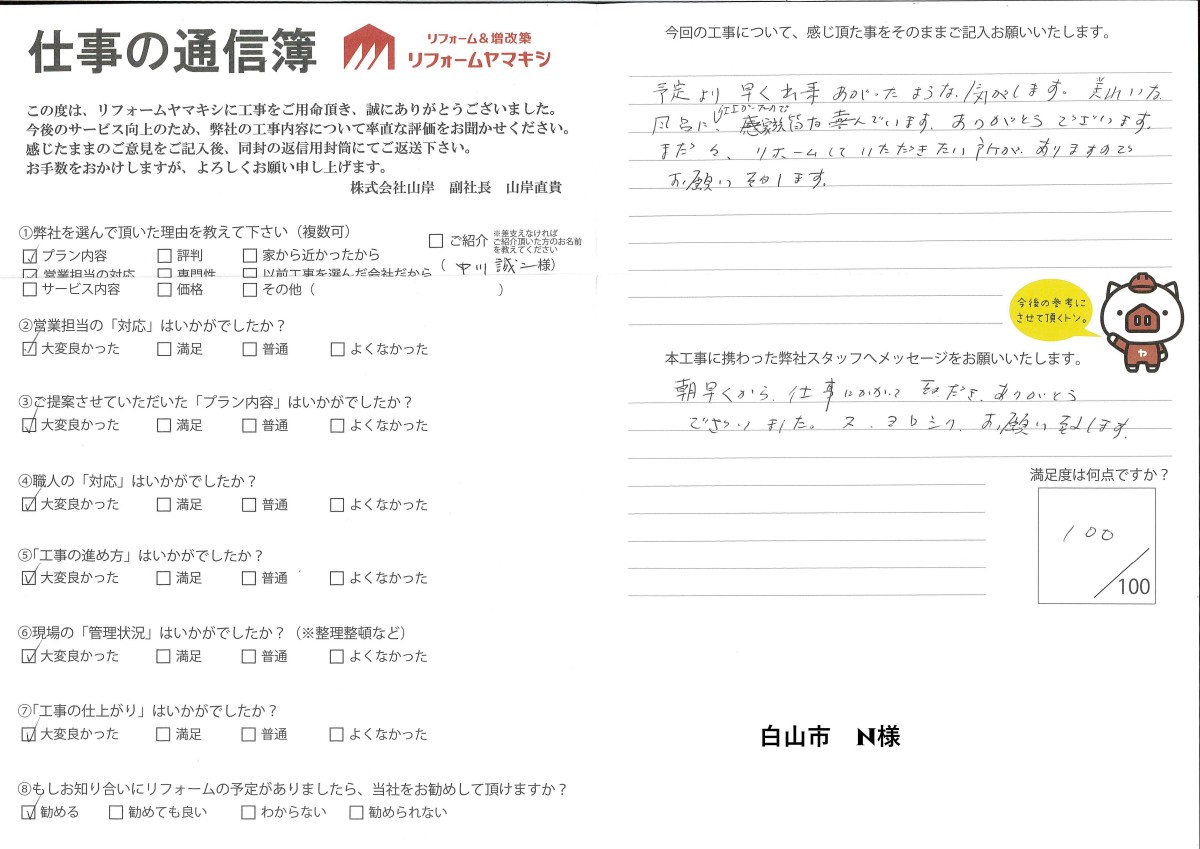 仕事の通信簿
リフォーム&増改築
リフォームヤマキシ
この度は、リフォームヤマキシに工事をご用命頂き、誠にありがとうございました。
今後のサービス向上のため、弊社の工事内容について率直な評価をお聞かせください。
感じたままのご意見をご記入後、同封の返信用封筒にてご返送下さい。
お手数をおかけしますが、よろしくお願い申し上げます。
株式会社山岸 副社長 山岸直貴
①弊社を選んで頂いた理由を教えて下さい（複数可）
☑ プラン内容 □ 評判 □ 家から近かったから □ ご紹介 ※差支えなければ
ご紹介頂いた方のお名前
を教えてください
☑ 営業担当の対応 □ 専門性 □ 以前工事を選んだ会社だから （中川 誠二様）
□ サービス内容 □ 価格 □ その他（ ）
②営業担当の「対応」はいかがでしたか？
☑ 大変良かった □ 満足 □ 普通 □ よくなかった
③ご提案させていただいた「プラン内容」はいかがでしたか？
☑ 大変良かった □ 満足 □ 普通 □ よくなかった
④職人の「対応」はいかがでしたか？
☑ 大変良かった □ 満足 □ 普通 □ よくなかった
⑤「工事の進め方」はいかがでしたか？
☑ 大変良かった □ 満足 □ 普通 □ よくなかった
⑥現場の「管理状況」はいかがでしたか？（※整理整頓など）
☑ 大変良かった □ 満足 □ 普通 □ よくなかった
⑦「工事の仕上がり」はいかがでしたか？
☑ 大変良かった □ 満足 □ 普通 □ よくなかった
⑧もしお知り合いにリフォームの予定がありましたら、当社をお勧めして頂けますか？
☑ 勧める □ 勧めても良い □ わからない □ 勧められない
今回の工事について、感じ頂た事をそのままご記入お願いいたします。
予定より早く出来あがったような気がします。美しい方
風呂に、家族皆な喜んでいます。ありがとうございます。
まだ々、リホームしていただきたい所が、ありますので
お願い致します。
今後の参考に
させて頂くトン。
ヤ
本工事に携わった弊社スタッフへメッセージをお願いいたします。
朝早くから、仕事にかかって頂だき、ありがとう
ございました。又、ヨロシク、お願い致します。
満足度は何点ですか？
100
／100
白山市 N様